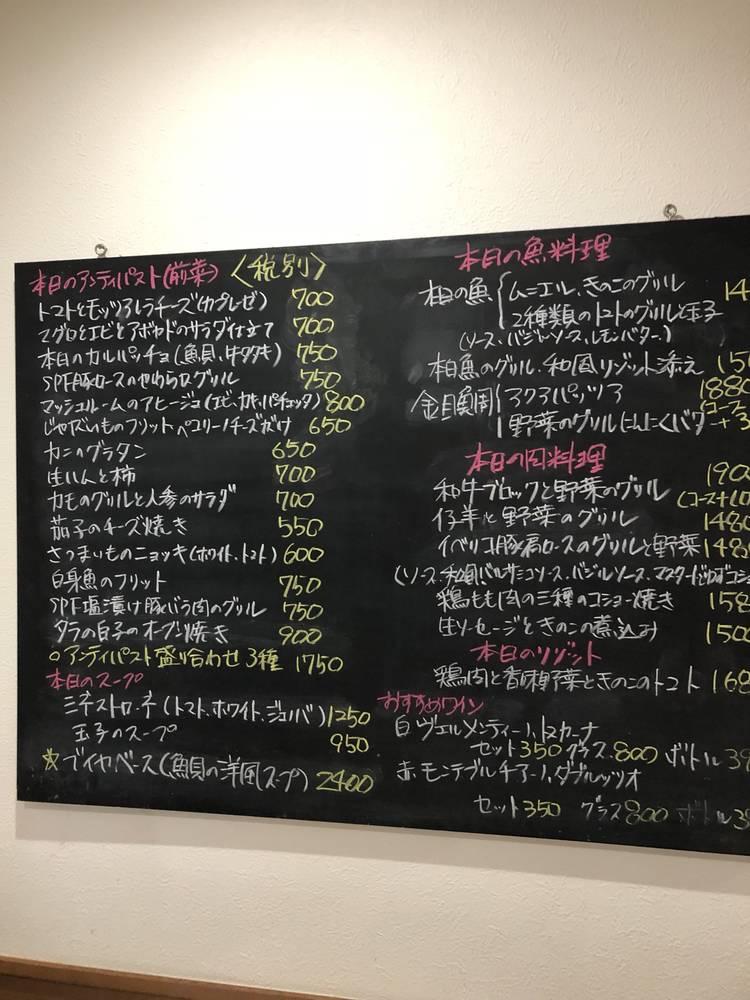 本日のアンティパスト(前菜) 〈税別〉
トマトとモッツアレラチーズ(カプレゼ) 700
マグロとエビとアボカドのサラダ仕立て 700
本日のカルパッチョ(魚貝、牛タタキ) 750
SPF豚ロースのやわらログリル 750
マッシュルームのアヒージョ(エビ、カキ、パンチェッタ) 800
じゃがいものフリット ペコリーノチーズがけ 650
カニのグラタン 650
生ハムと柿 700
カモのグリルと人参のサラダ 700
茄子のチーズ焼き 550
さつまいものニョッキ(ホワイト、トマト) 600
白身魚のフリット 750
SPF塩漬け豚バラ肉のグリル 750
タラの白子のオーブン焼き 900
○アンティパスト盛り合わせ 3種 1750
本日のスープ
ミネストローネ(トマト、ホワイト、ジェノバ) 1250
玉子のスープ 950
☆ブイヤベース(魚貝の洋風スープ) 2400
本日の魚料理
ムニエル、きのこのグリル 14
の魚
2種類のトマトのグリルと玉子
(ソース、バジルソース、レモンバター)
魚のグリル、和風リゾット添え 15
金目鯛 アクアパッツア 188
(コース
野菜のグリルにんにくバター +3
本日の肉料理
和牛ブロックと野菜のグリル 190
(コース+10
仔羊と野菜のグリル 148
イベリコ豚肩ロースのグリルと野菜 148
(ソース、和風バルサミコソース、バジルソース、マスタードゆずコショ
鶏もも肉の三種のコショー焼き 158
生ソーセージときのこの煮込み 150
本日のリゾット
鶏肉と香味野菜ときのこのトマト 168
おすすめワイン
白 ヴェルメンティーノ、トスカーナ
セット350 グラス800 ボトル38
赤、モンテプルチアーノ、ダブルッツオ
セット350 グラス800 ボトル38